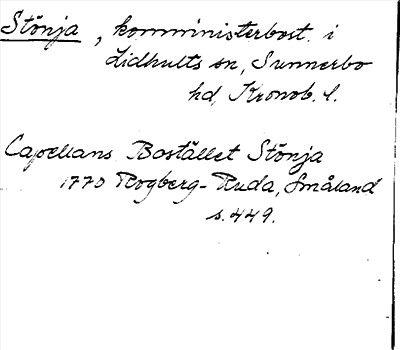 Stönja, komministerbost. i
Lidhults sn, Sunnerbo
hd, Kronob. l.
Capellans Bostället Stönja
1770 Rogberg-Ruda, Småland
s. 449.